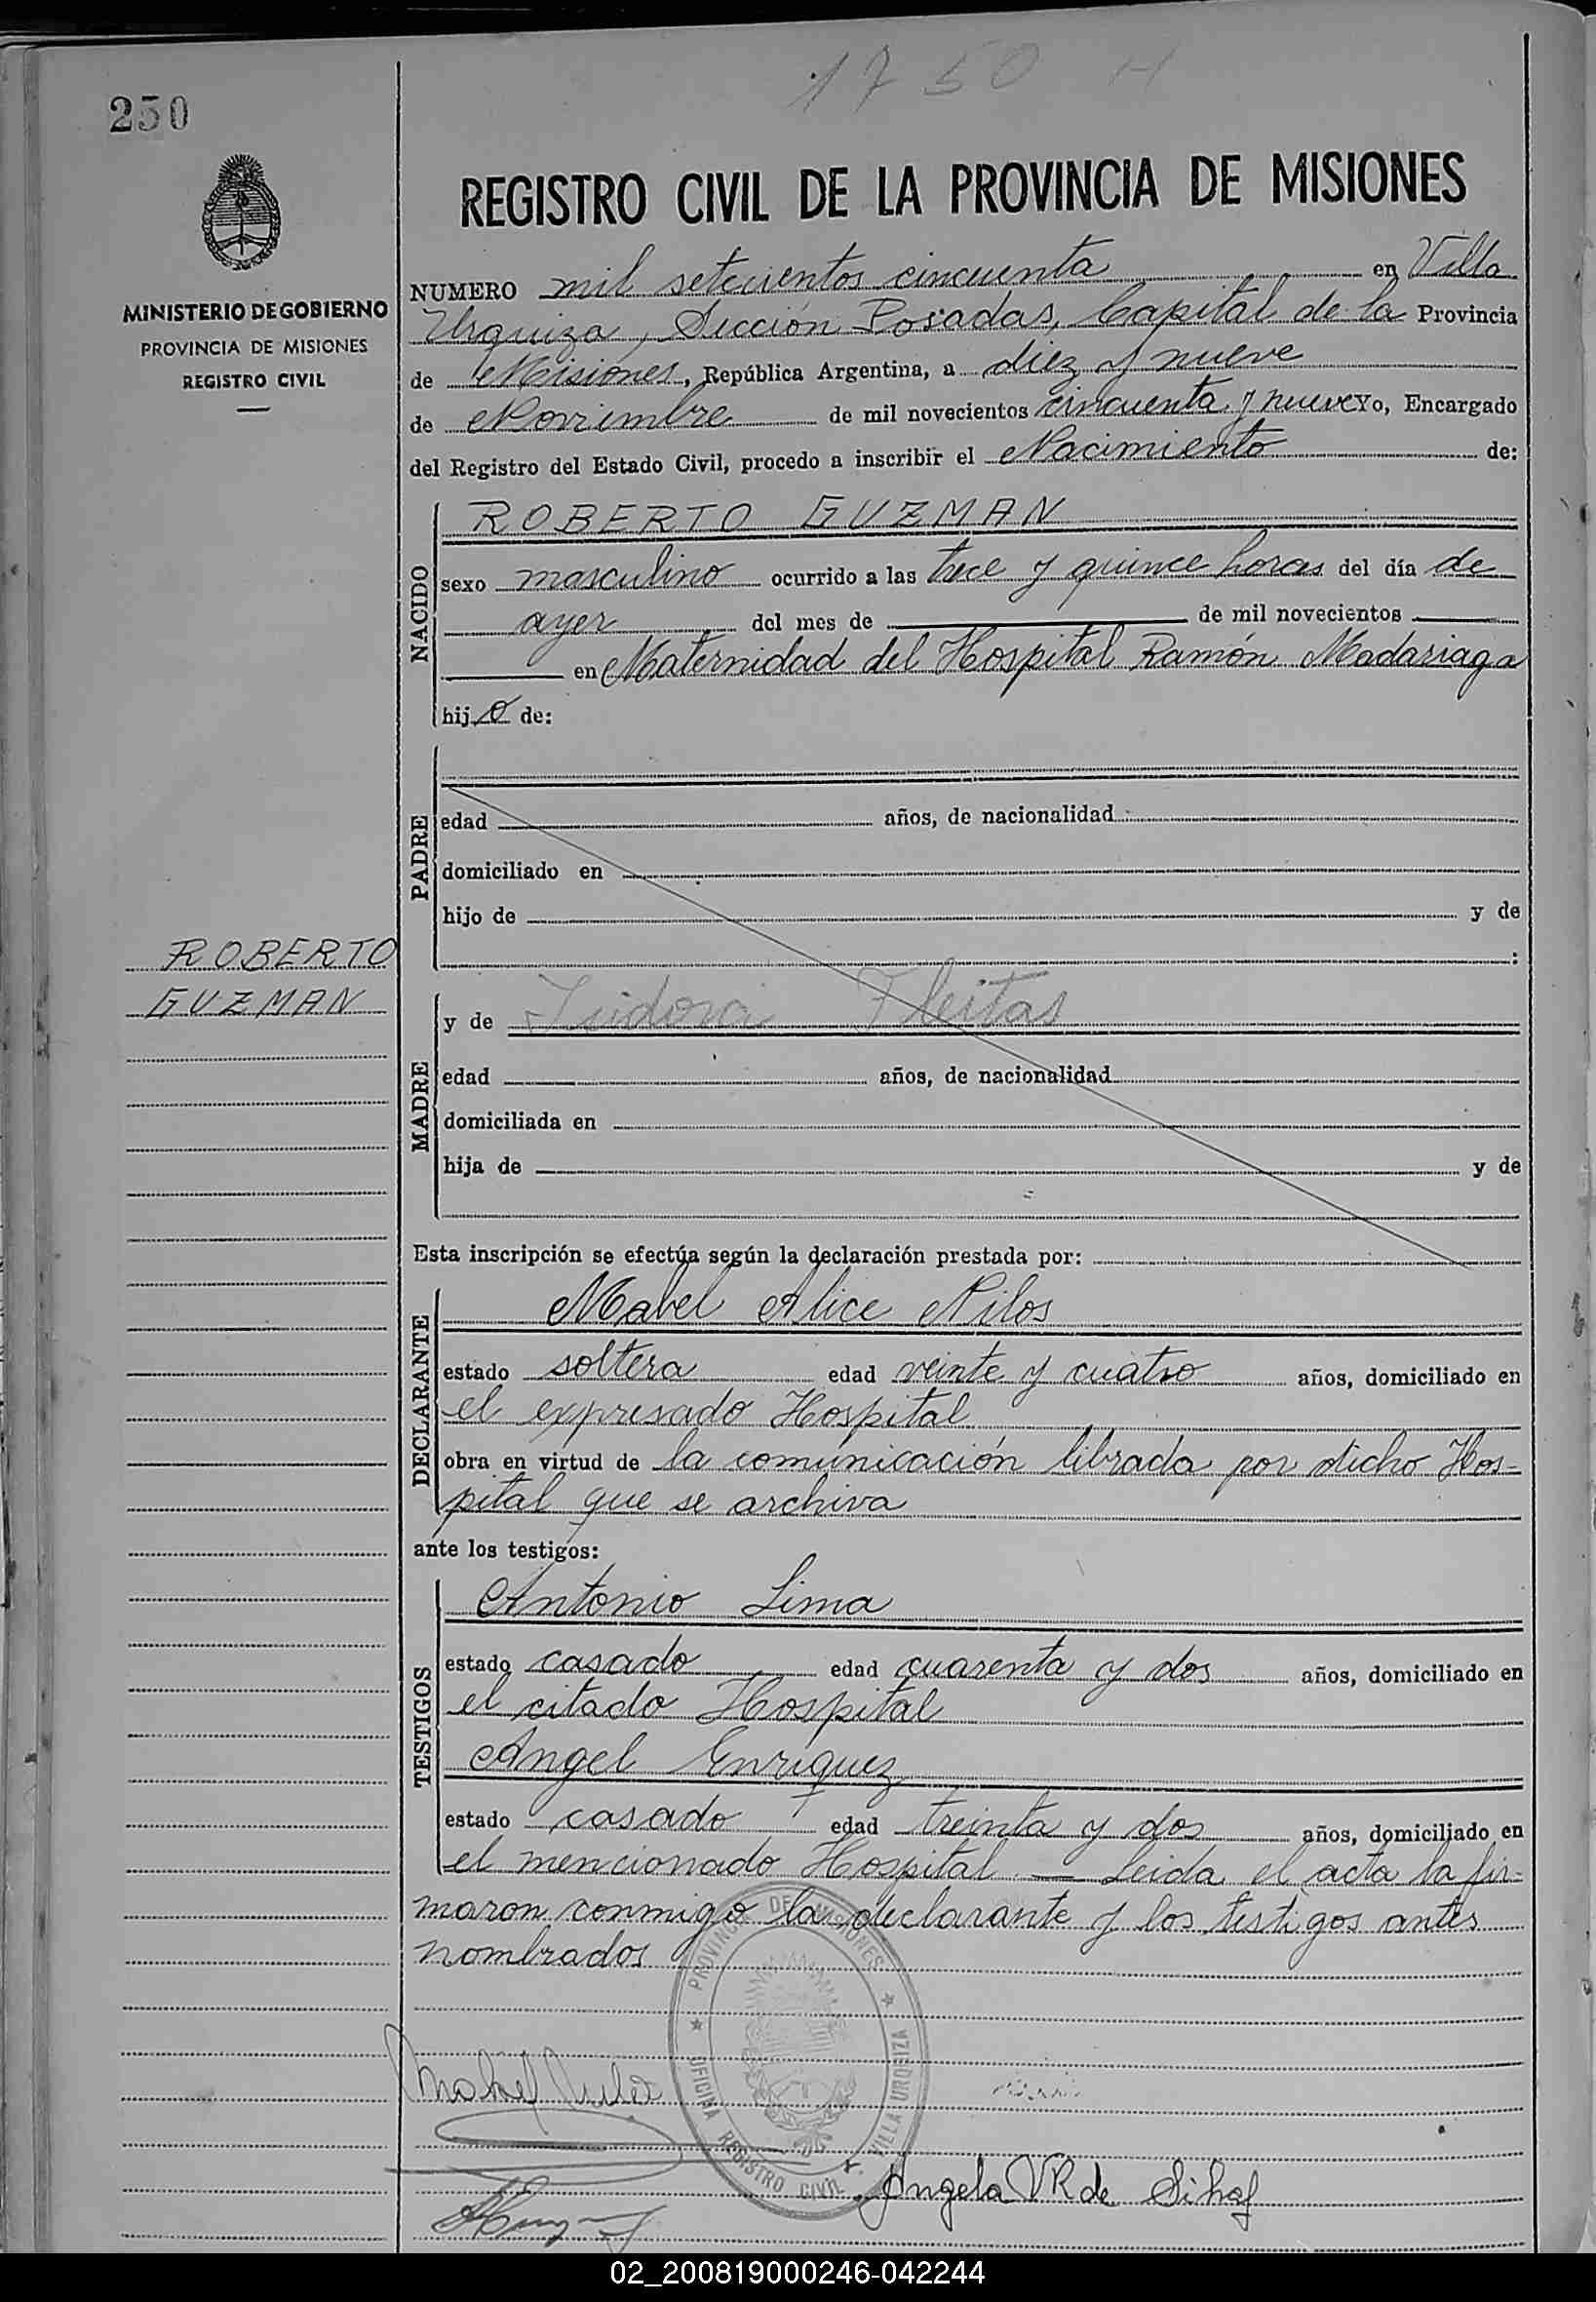 1750 H
250
MINISTERIO DE GOBIERNO
PROVINCIA DE MISIONES
REGISTRO CIVIL
REGISTRO CIVIL DE LA PROVINCIA DE MISIONES
NUMERO mil setecientos cincuenta en Villa
Urquiza, Sección Posadas, Capital de la Provincia
de Misiones, República Argentina, a diez y nueve
de Noviembre de mil novecientos cincuenta y nueve Yo, Encargado
del Registro del Estado Civil, procedo a inscribir el Nacimiento de:
NACIDO
ROBERTO GUZMAN
sexo masculino ocurrido a las trece y quince horas del día de
ayer del mes de de mil novecientos
en Maternidad del Hospital Ramón Madariaga
hijo de:
PADRE
edad años, de nacionalidad
domiciliado en
hijo de y de
:
ROBERTO
GUZMAN
MADRE
y de Fleitas
edad años, de nacionalidad
domiciliada en
hija de y de
Esta inscripción se efectúa según la declaración prestada por:
DECLARANTE
Mabel Alice Nilos
estado soltera edad veinte y cuatro años, domiciliado en
el expresado Hospital
obra en virtud de la comunicación librada por dicho Hos-
pital que se archiva
ante los testigos:
TESTIGOS
Antonio Lima
estado casado edad cuarenta y dos años, domiciliado en
el citado Hospital
Angel Enriquez
estado casado edad treinta y dos años, domiciliado en
el mencionado Hospital — Leida el acta la fir-
maron conmigo la declarante y los testigos antes
nombrados
PROVINCIA DE MISIONES
OFICINA REGISTRO CIVIL
VILLA URQUIZA
Angela VR de
02_200819000246-042244